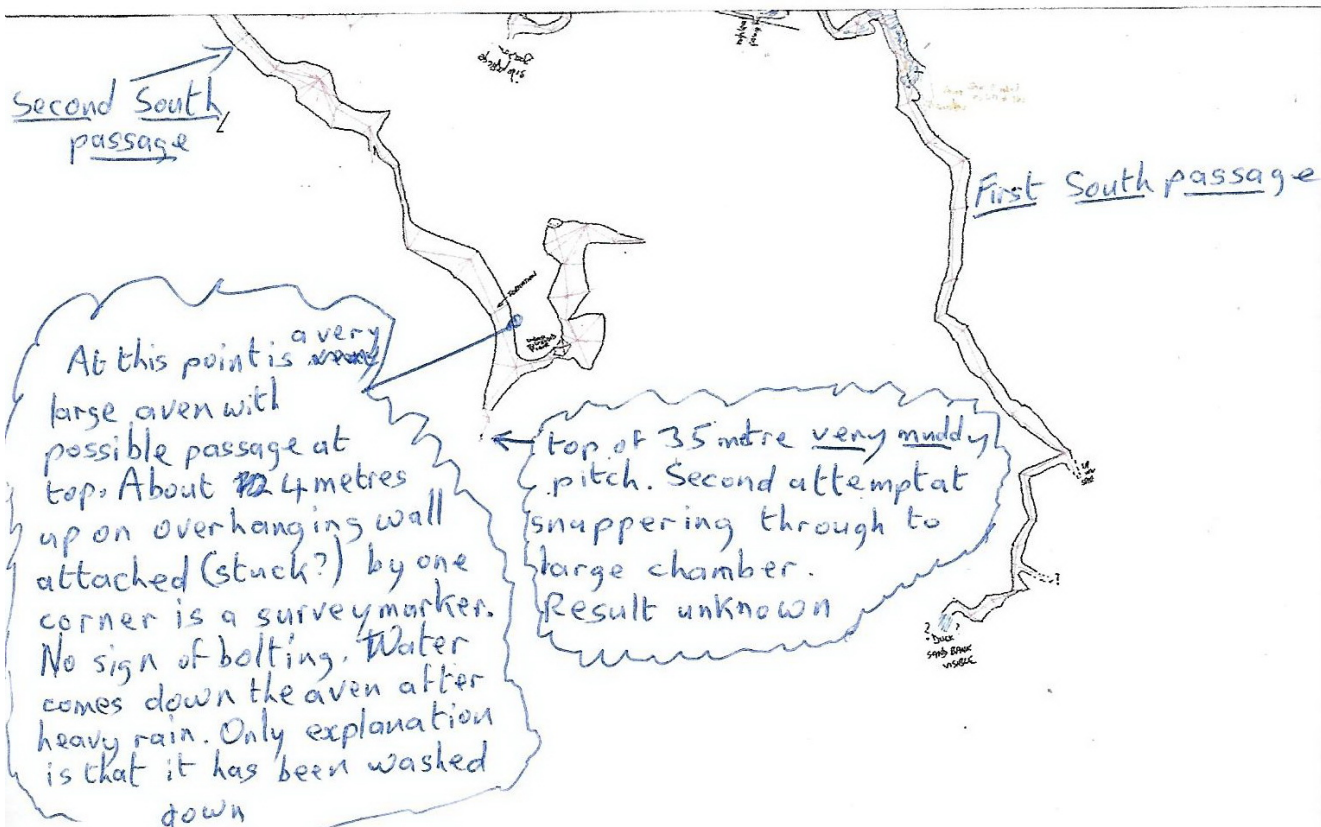 Second South
passage
side passage
First South passage
At this point is a very
large aven with
possible passage at
top. About 4 metres
up on overhanging wall
attached (stuck?) by one
corner is a survey marker.
No sign of bolting. Water
comes down the aven after
heavy rain. Only explanation
is that it has been washed
down
top of 35 metre very muddy
pitch. Second attempt at
snappering through to
large chamber.
Result unknown
?
?
?
DUCK
SAND BANK
VISIBLE